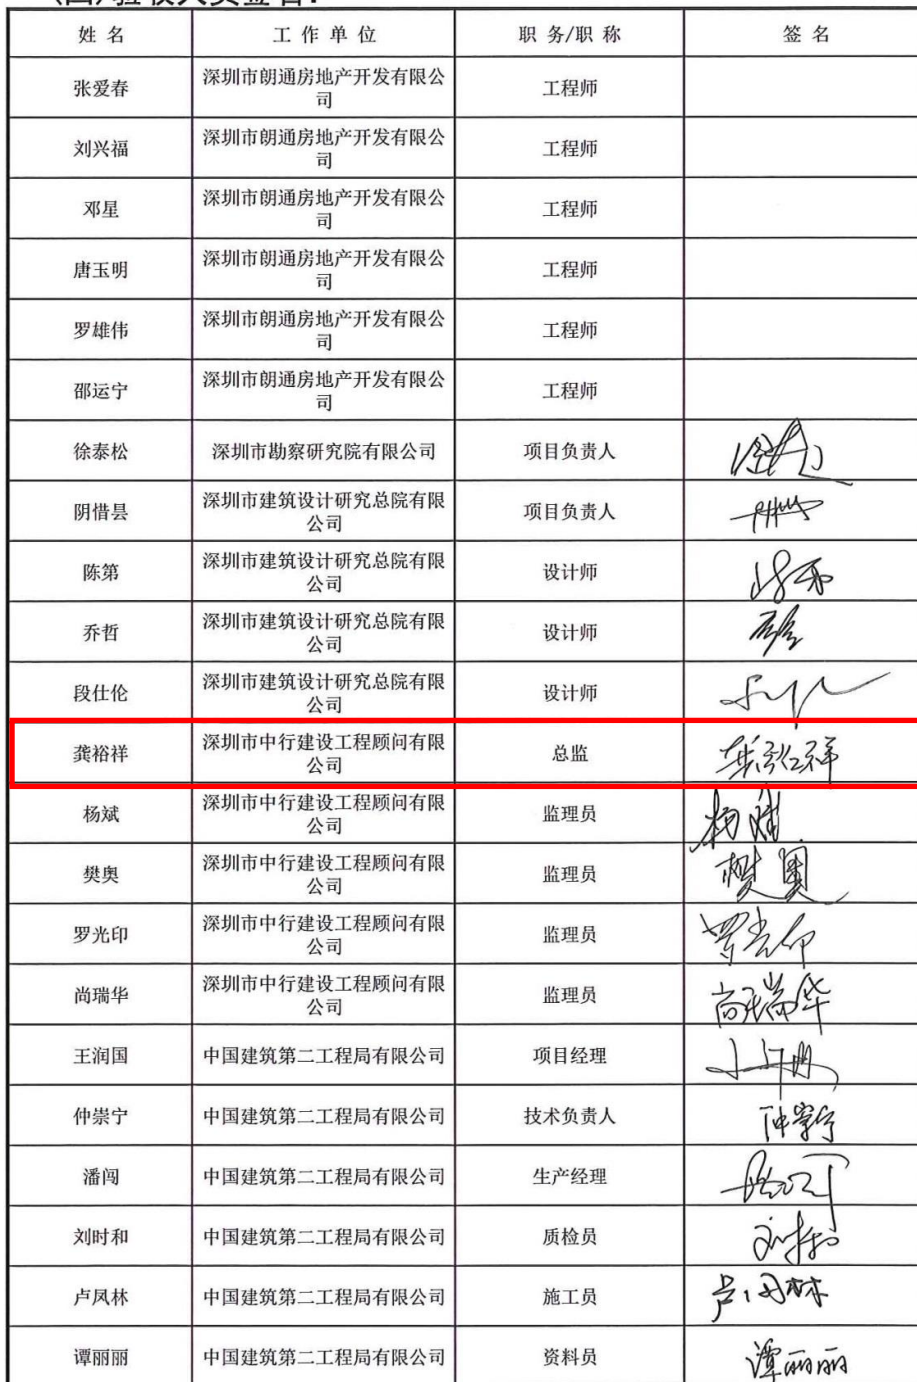 (四)验收人员签名：
姓 名 工 作 单 位 职 务/职 称 签 名
张爱春 深圳市朗通房地产开发有限公 工程师
司
刘兴福 深圳市朗通房地产开发有限公 工程师
司
邓星 深圳市朗通房地产开发有限公 工程师
司
唐玉明 深圳市朗通房地产开发有限公 工程师
司
罗雄伟 深圳市朗通房地产开发有限公 工程师
司
邵运宁 深圳市朗通房地产开发有限公 工程师
司
徐泰松 深圳市勘察研究院有限公司 项目负责人
阴惜昙 深圳市建筑设计研究总院有限 项目负责人
公司
陈第 深圳市建筑设计研究总院有限 设计师
公司
乔哲 深圳市建筑设计研究总院有限 设计师
公司
段仕伦 深圳市建筑设计研究总院有限 设计师
公司
龚裕祥 深圳市中行建设工程顾问有限 总监
公司
杨斌 深圳市中行建设工程顾问有限 监理员 杨斌
公司
樊奥 深圳市中行建设工程顾问有限 监理员 樊奥
公司
罗光印 深圳市中行建设工程顾问有限 监理员 罗光印
公司
尚瑞华 深圳市中行建设工程顾问有限 监理员 尚瑞华
公司
王润国 中国建筑第二工程局有限公司 项目经理
仲崇宁 中国建筑第二工程局有限公司 技术负责人 仲崇宁
潘闯 中国建筑第二工程局有限公司 生产经理
刘时和 中国建筑第二工程局有限公司 质检员 刘时和
卢凤林 中国建筑第二工程局有限公司 施工员 卢凤林
谭丽丽 中国建筑第二工程局有限公司 资料员 谭丽丽